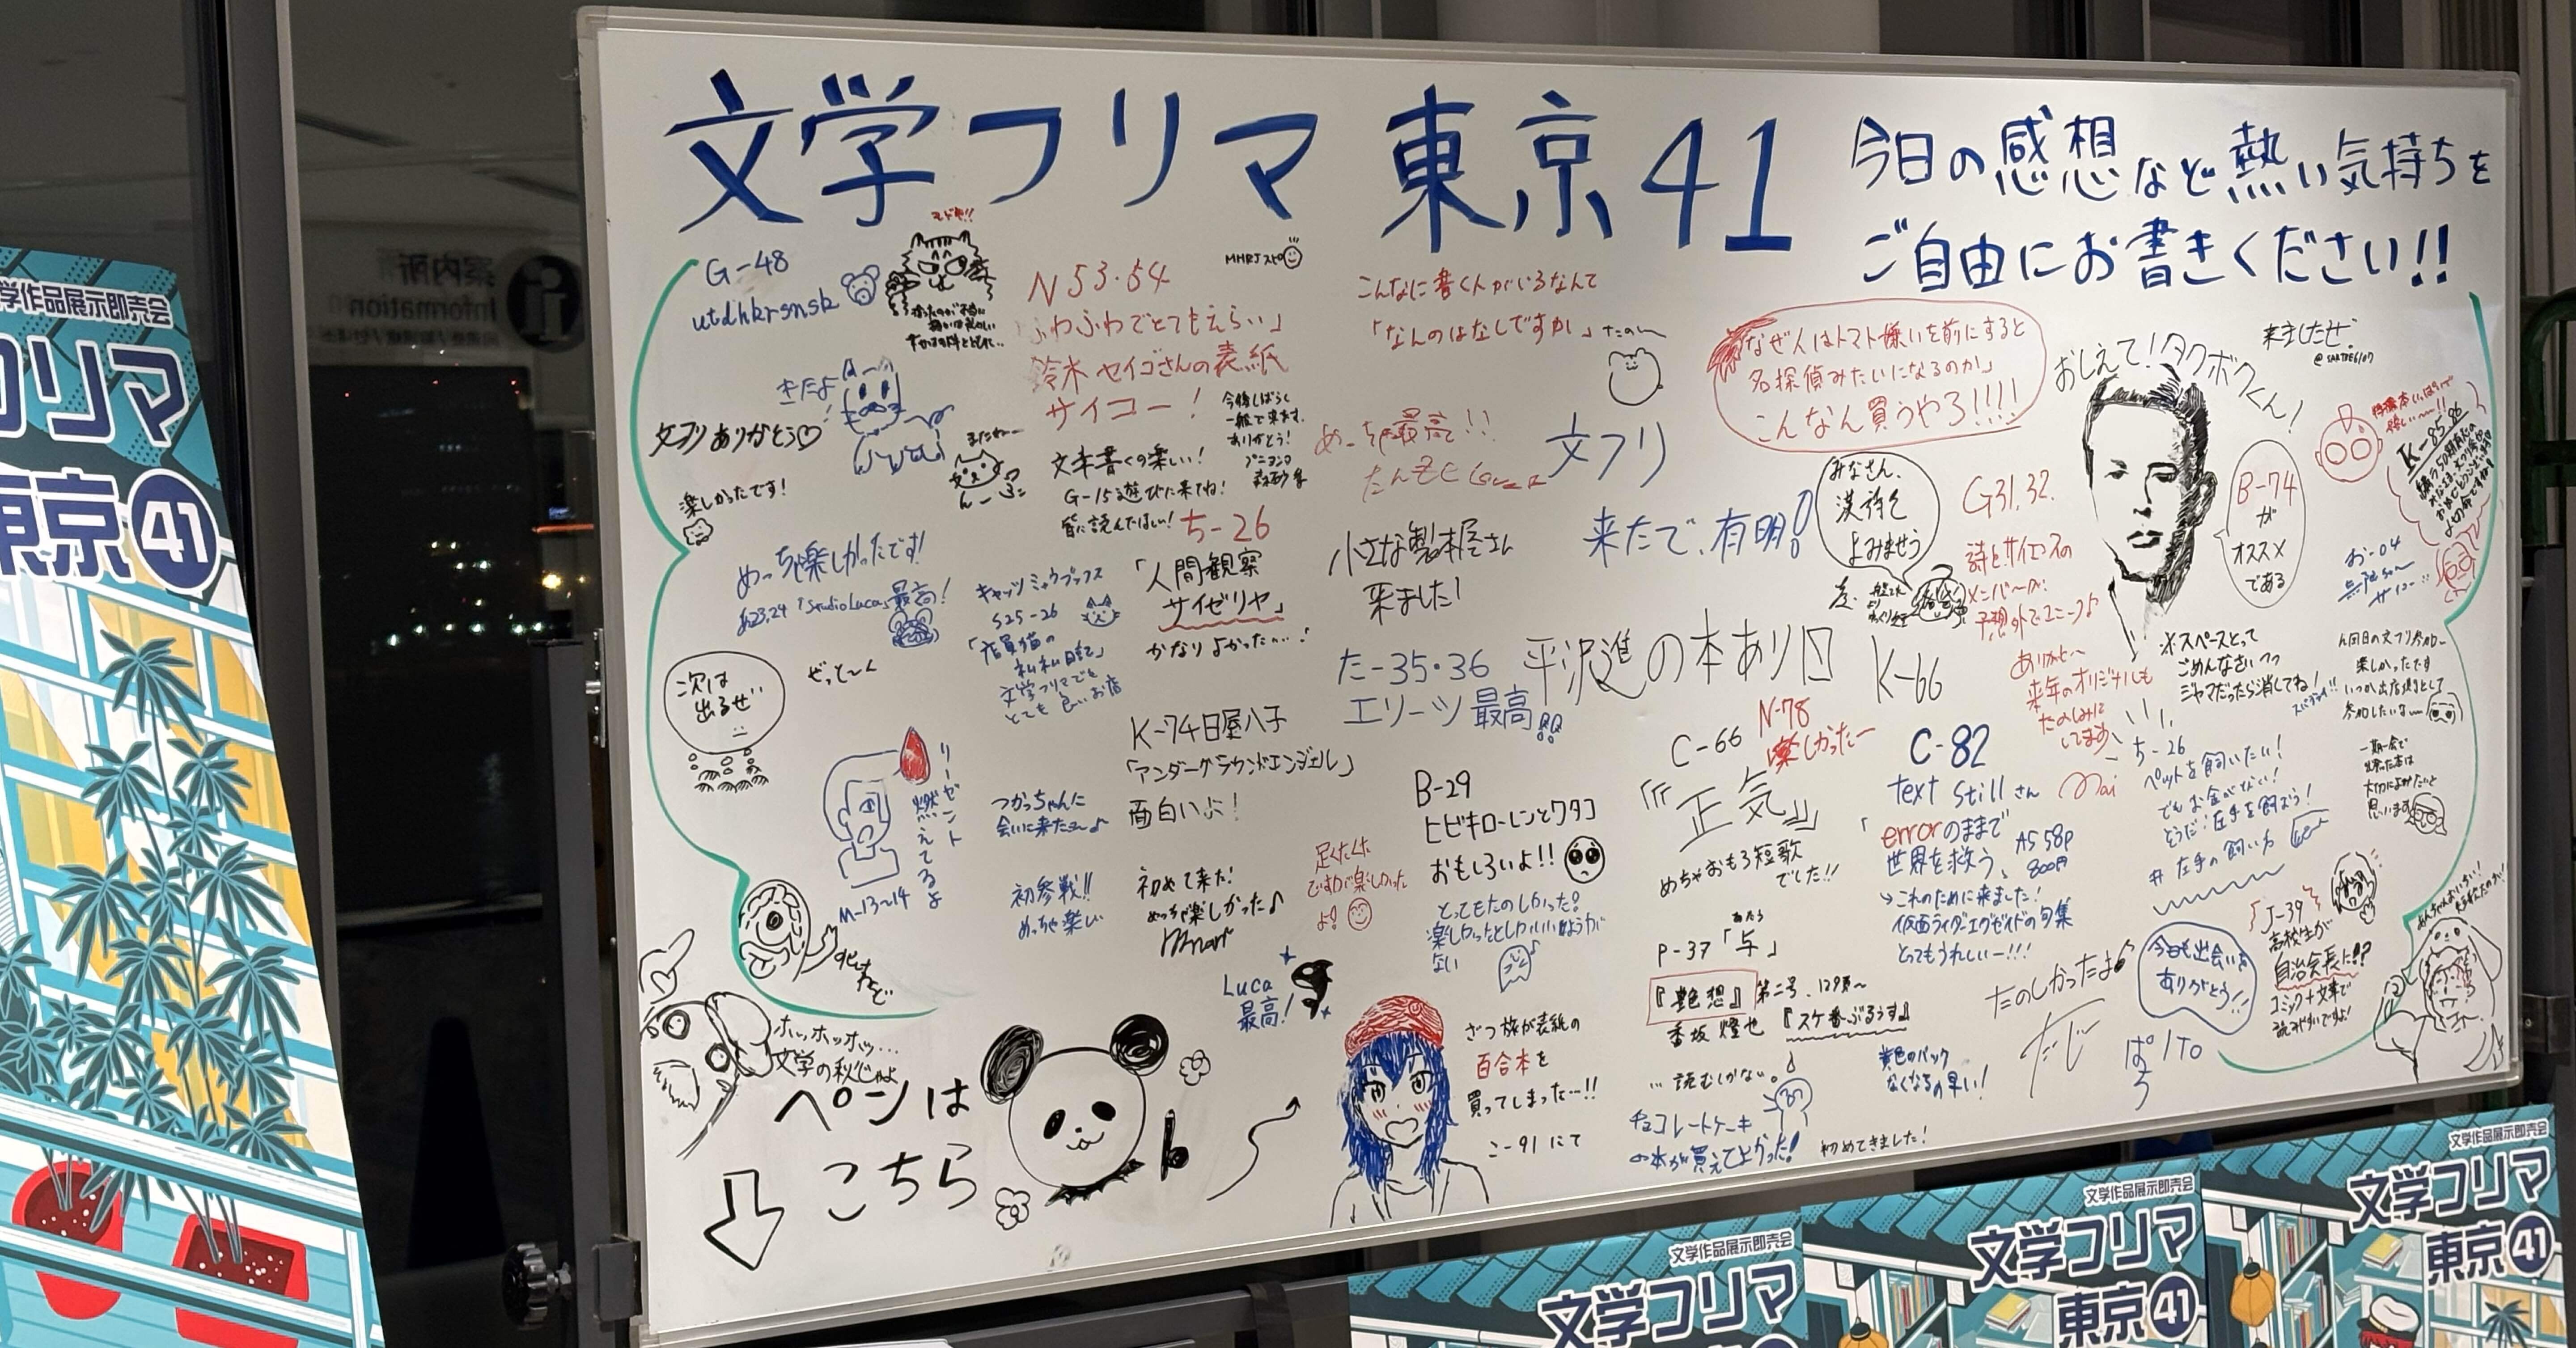 文学フリマ 東京41
今日の感想など熱い気持ちを
ご自由にお書きください!!
学作品展示即売会
フリマ
東京 41
案内所
Information
G-48
utdhkrsnsk
きたよ
文フリありがとう♡
楽しかったです!
めっちゃ楽しかったです!
「Studio Luca」最高!
次は
出るぜ
ぜっと〜く
リーゼント
燃えてるよ
M-13~14
ホッホッホッ…
文学の秋じゃよ
ペンは
こちら
N53・54
ふわふわでとてもえらい」
鈴木セイゴさんの表紙
サイコー!
今後しばらく
一般で来ます.
ありがとう!
またねー
文章書くの楽しい!
G-15も遊びに来てね!
皆に読んでほしい!
ち-26
「人間観察
サイゼリヤ」
かなりよかった…!
キャッツミャウブックス
S25-26
「店員猫の
文学フリマでも
とても良いお店
K-74日屋八子
「アンダーグラウンドエンジェル」
面白いよ!
つかっちゃんに
会いに来たよ〜♪
初参戦!!
めっちゃ楽しい
初めて来た!
めっちゃ楽しかった♪
Luca
最高!
こんなに書く人がいるなんて
「なんのはなしですか」
めっちゃ最高!!
文フリ
来たで、有明!
小さな製本屋さん
来ました!
た-35・36
エリーツ最高!!
平沢進の本あり〼 K-66
B-29
ヒビキローレンとワタコ
おもしろいよ!!
足くたくた
ですが楽しかった
よ!
とってもたのしかった!
楽しかったとしかいいようが
ない
ざつ旅が表紙の
百合本を
買ってしまった…!!
こ-91にて
なぜ人はトマト嫌いを前にすると
名探偵みたいになるのか」
こんなん買うやろ!!!!
おしえて!タクボクくん!
来ましたぜ.
みなさん、
漢詩を
よみませう
G31,32.
詩とサイエンスの
メンバーが
予想外でユニーク♪
B-74
が
オススメ
である
K-85,86
お-04
※スペースとって
ごめんなさいっっ
ジャマだったら消してね!
ありがと〜
来年のオリジナルも
たのしみに
してます
Mai
楽しかったです
いつか出店側として
参加したいな〜
一期一会で
出会った本は
思います
C-66
『正気』
めちゃおもろ短歌
でした!!
N-78
楽しかったー
C-82
text stillさん
「errorのままで
世界を救う」
A5 58p
800円
→これのために来ました!
仮面ライダーエグゼイドの句集
とってもうれしいー!!!
ち-26
ペットを飼いたい!
でもお金がない!
そうだ!左手を飼おう!
#左手の飼い方
P-37「与」
あたう
第二号、129頁〜
香坂燈也『スケ番ぶるうす』
…読むしかない。
チョコレートケーキ
の本が買えてよかった!
初めてきました!
黄色のパック
なくなるの早い!
たのしかったよ♪
今日も出会いを
ありがとう!!
J-39
高校生が
自治会長に!?
コミック+文章で
読みやすいですよ!
文学作品展示即売会
文学フリマ
文学作品展示即売会
文学フリマ
東京 41
文学作品展示即売会
文学フリマ
東京 41